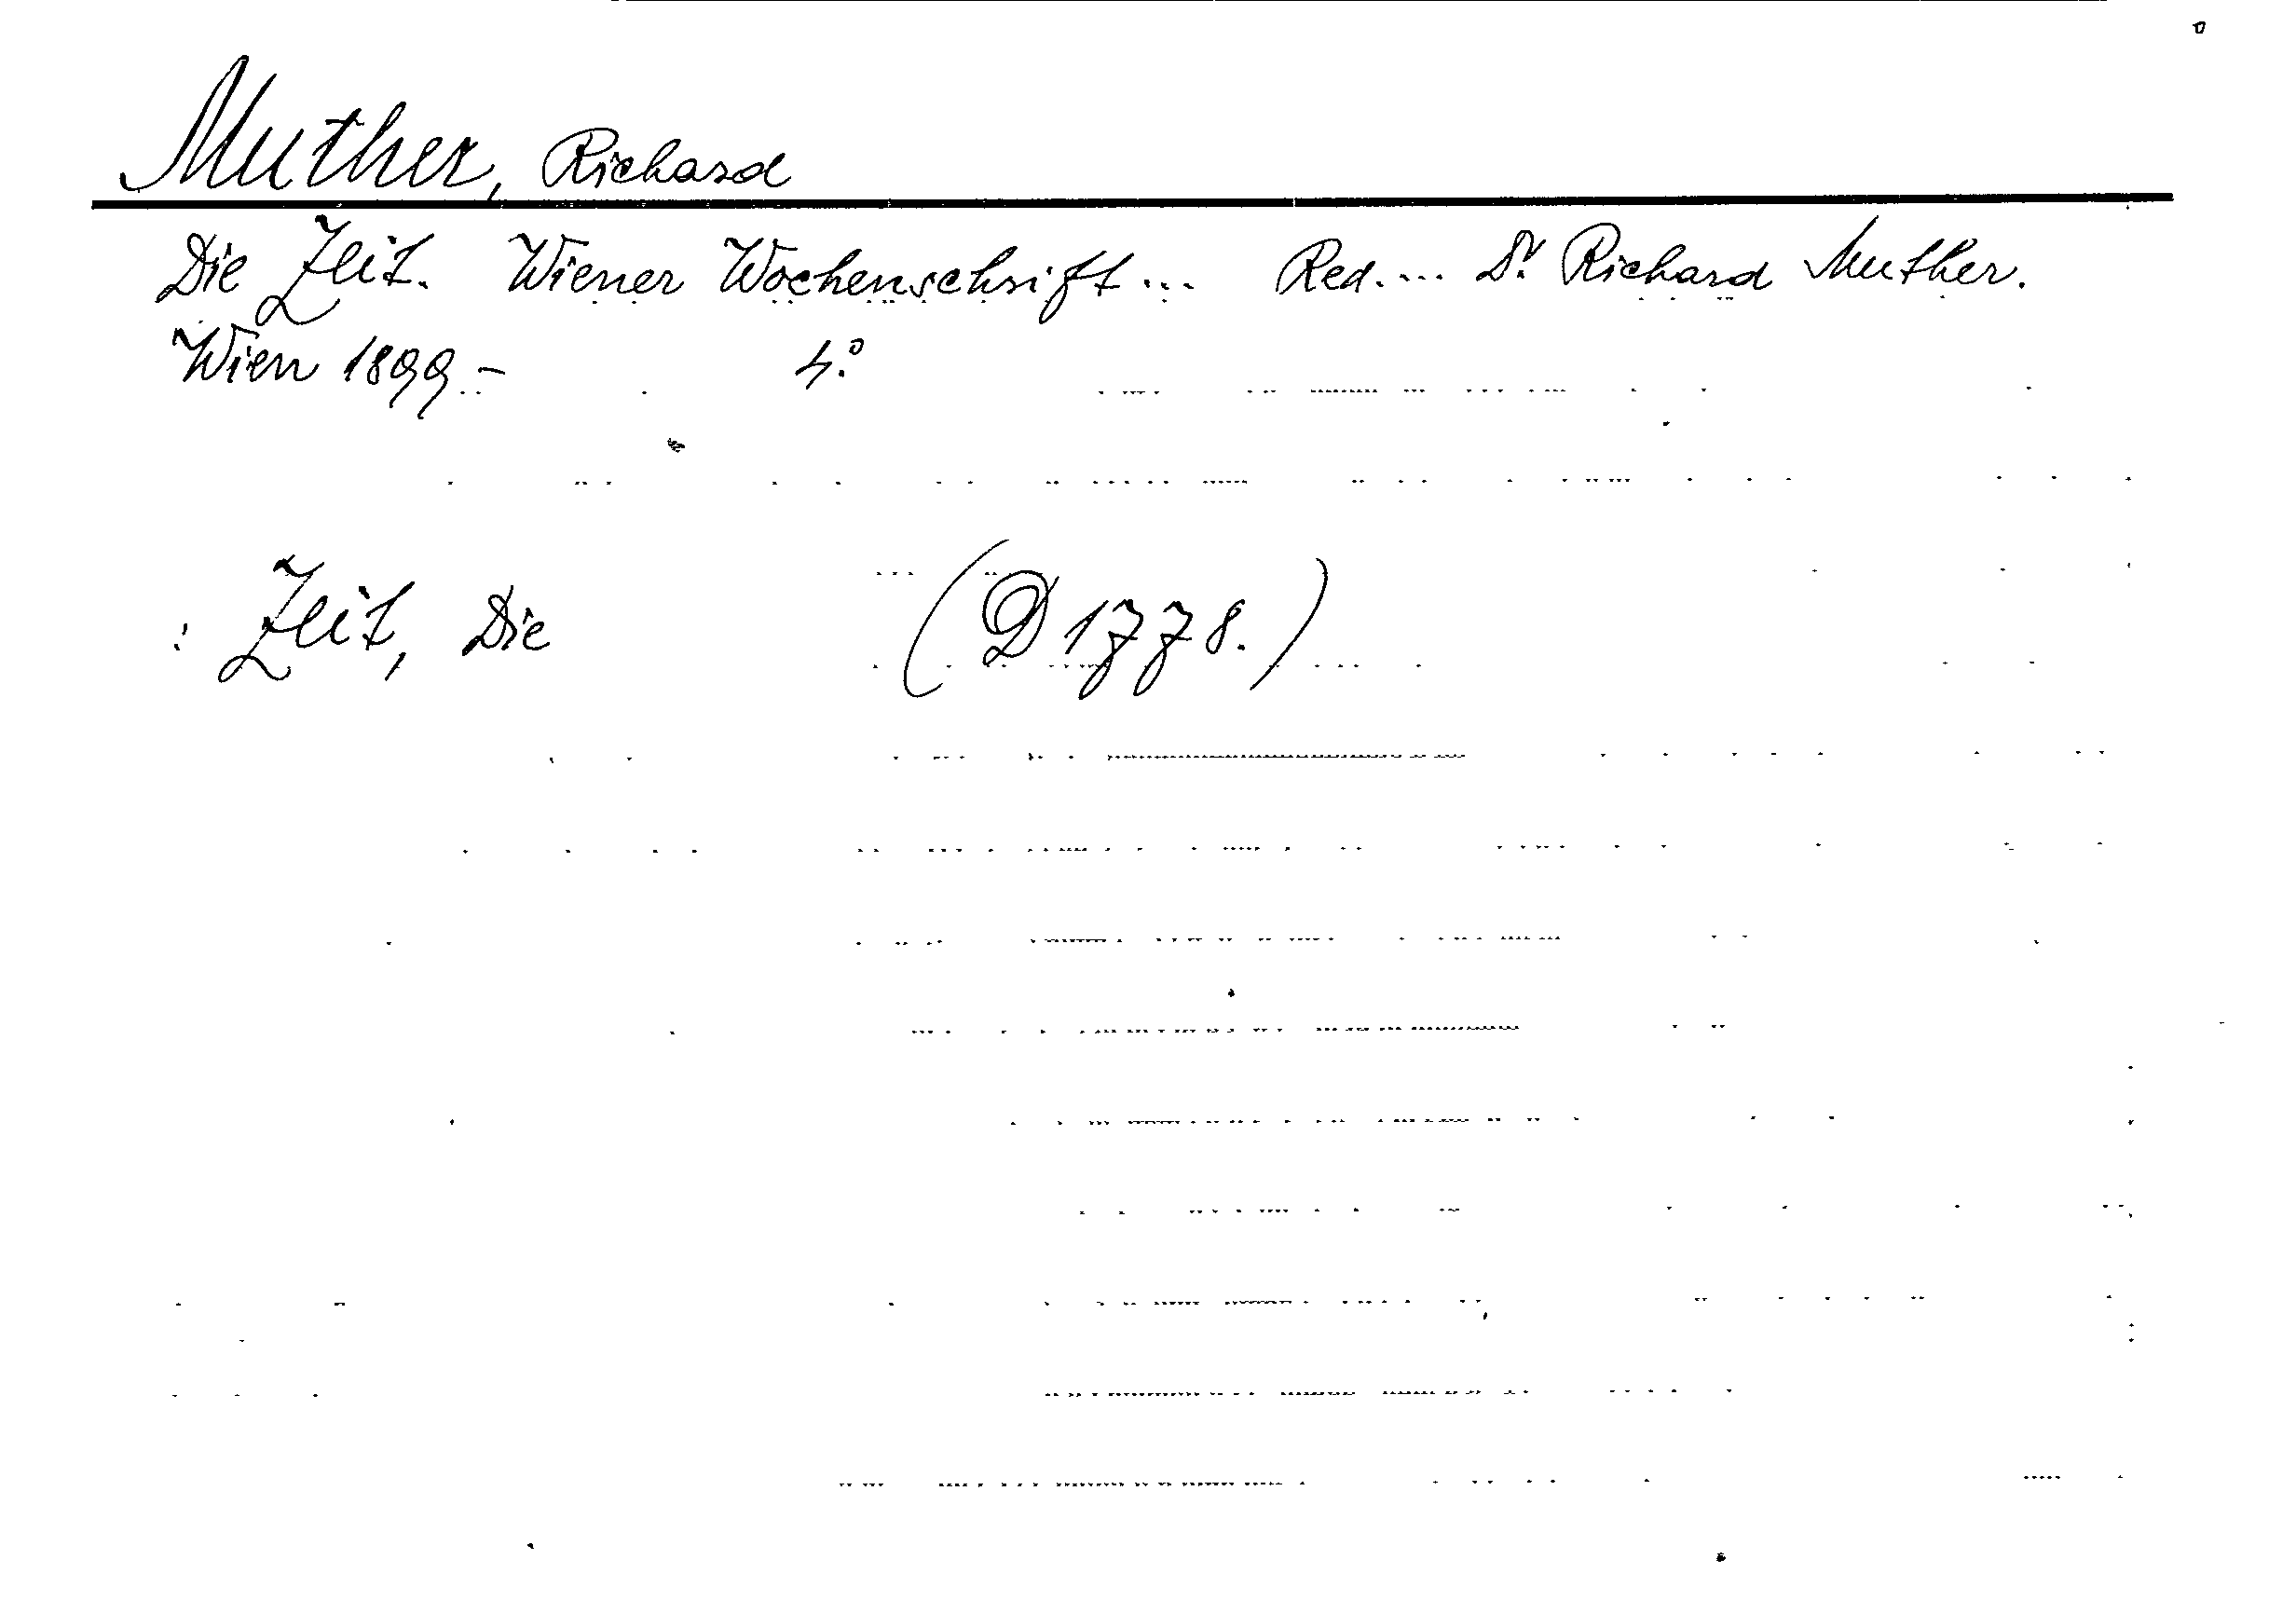 Muther, Richard
Die Zeit. Wiener Wochenschrift... Red.... Dr. Richard Muther.
Wien 1899.- 4.°
: Zeit, Die (D 1778.)